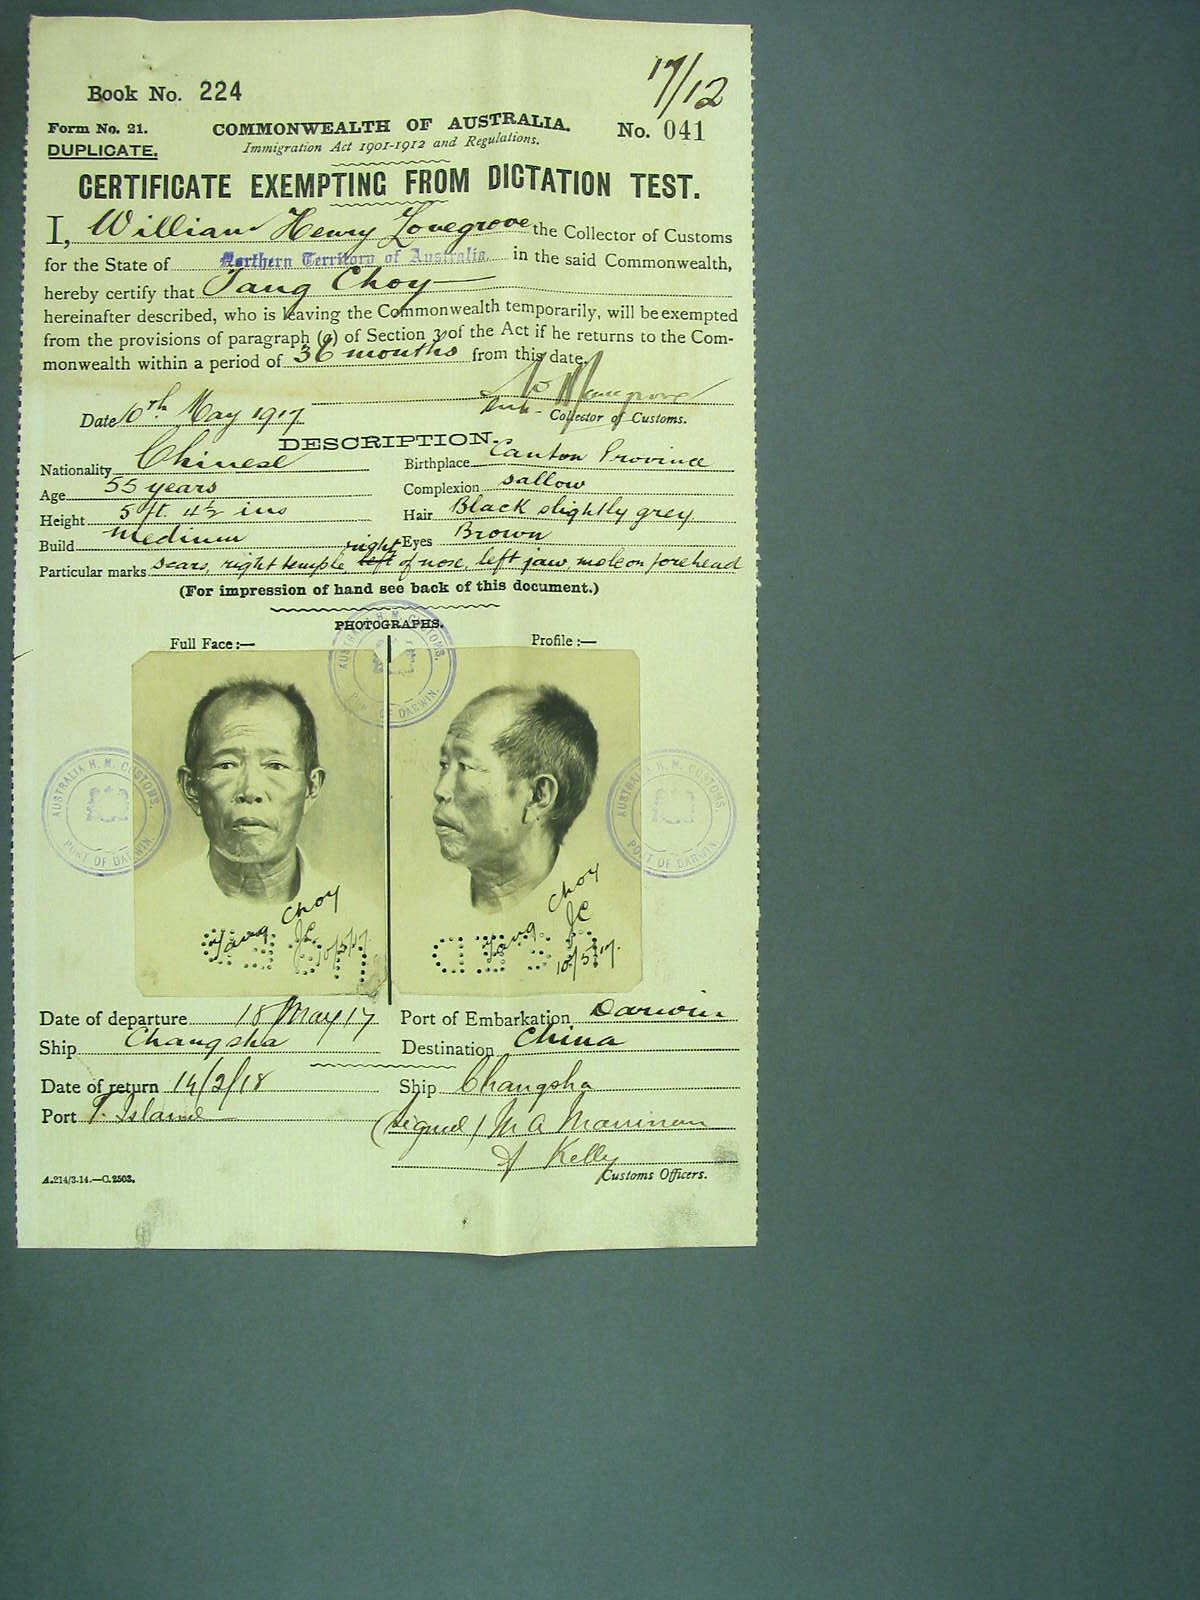 17/12
Book No. 224
Form No. 21.
COMMONWEALTH OF AUSTRALIA.
No. 041
DUPLICATE.
Immigration Act 1901-1912 and Regulations.
CERTIFICATE EXEMPTING FROM DICTATION TEST.
I, William Henry Lovegrove the Collector of Customs
for the State of Northern Territory of Australia in the said Commonwealth,
hereby certify that Tang Choy
hereinafter described, who is leaving the Commonwealth temporarily, will be exempted
from the provisions of paragraph (a) of Section 3 of the Act if he returns to the Com-
monwealth within a period of 36 months from this date.
Date 10th May 1917
Collector of Customs.
DESCRIPTION.
Nationality Chinese Birthplace Canton Province
Age 55 years Complexion sallow
Height 5 ft. 4½ ins Hair Black slightly grey
Build medium Eyes Brown
Particular marks scars, right temple left right of nose, left jaw, mole on forehead
(For impression of hand see back of this document.)
PHOTOGRAPHS.
Full Face:— Profile:—
AUSTRALIA H. M. CUSTOMS. PORT OF DARWIN.
AUSTRALIA H. M. CUSTOMS. PORT OF DARWIN.
AUSTRALIA H. M. CUSTOMS. PORT OF DARWIN.
Tang Choy
JC
10/5/17.
Tang Choy
JC
10/5/17.
Date of departure 18 May 17 Port of Embarkation Darwin
Ship Changsha Destination China
Date of return 14/2/18 Ship Changsha
Port T. Island (signed) M A
Kelly
A.214/3.14.—C.2503. Customs Officers.